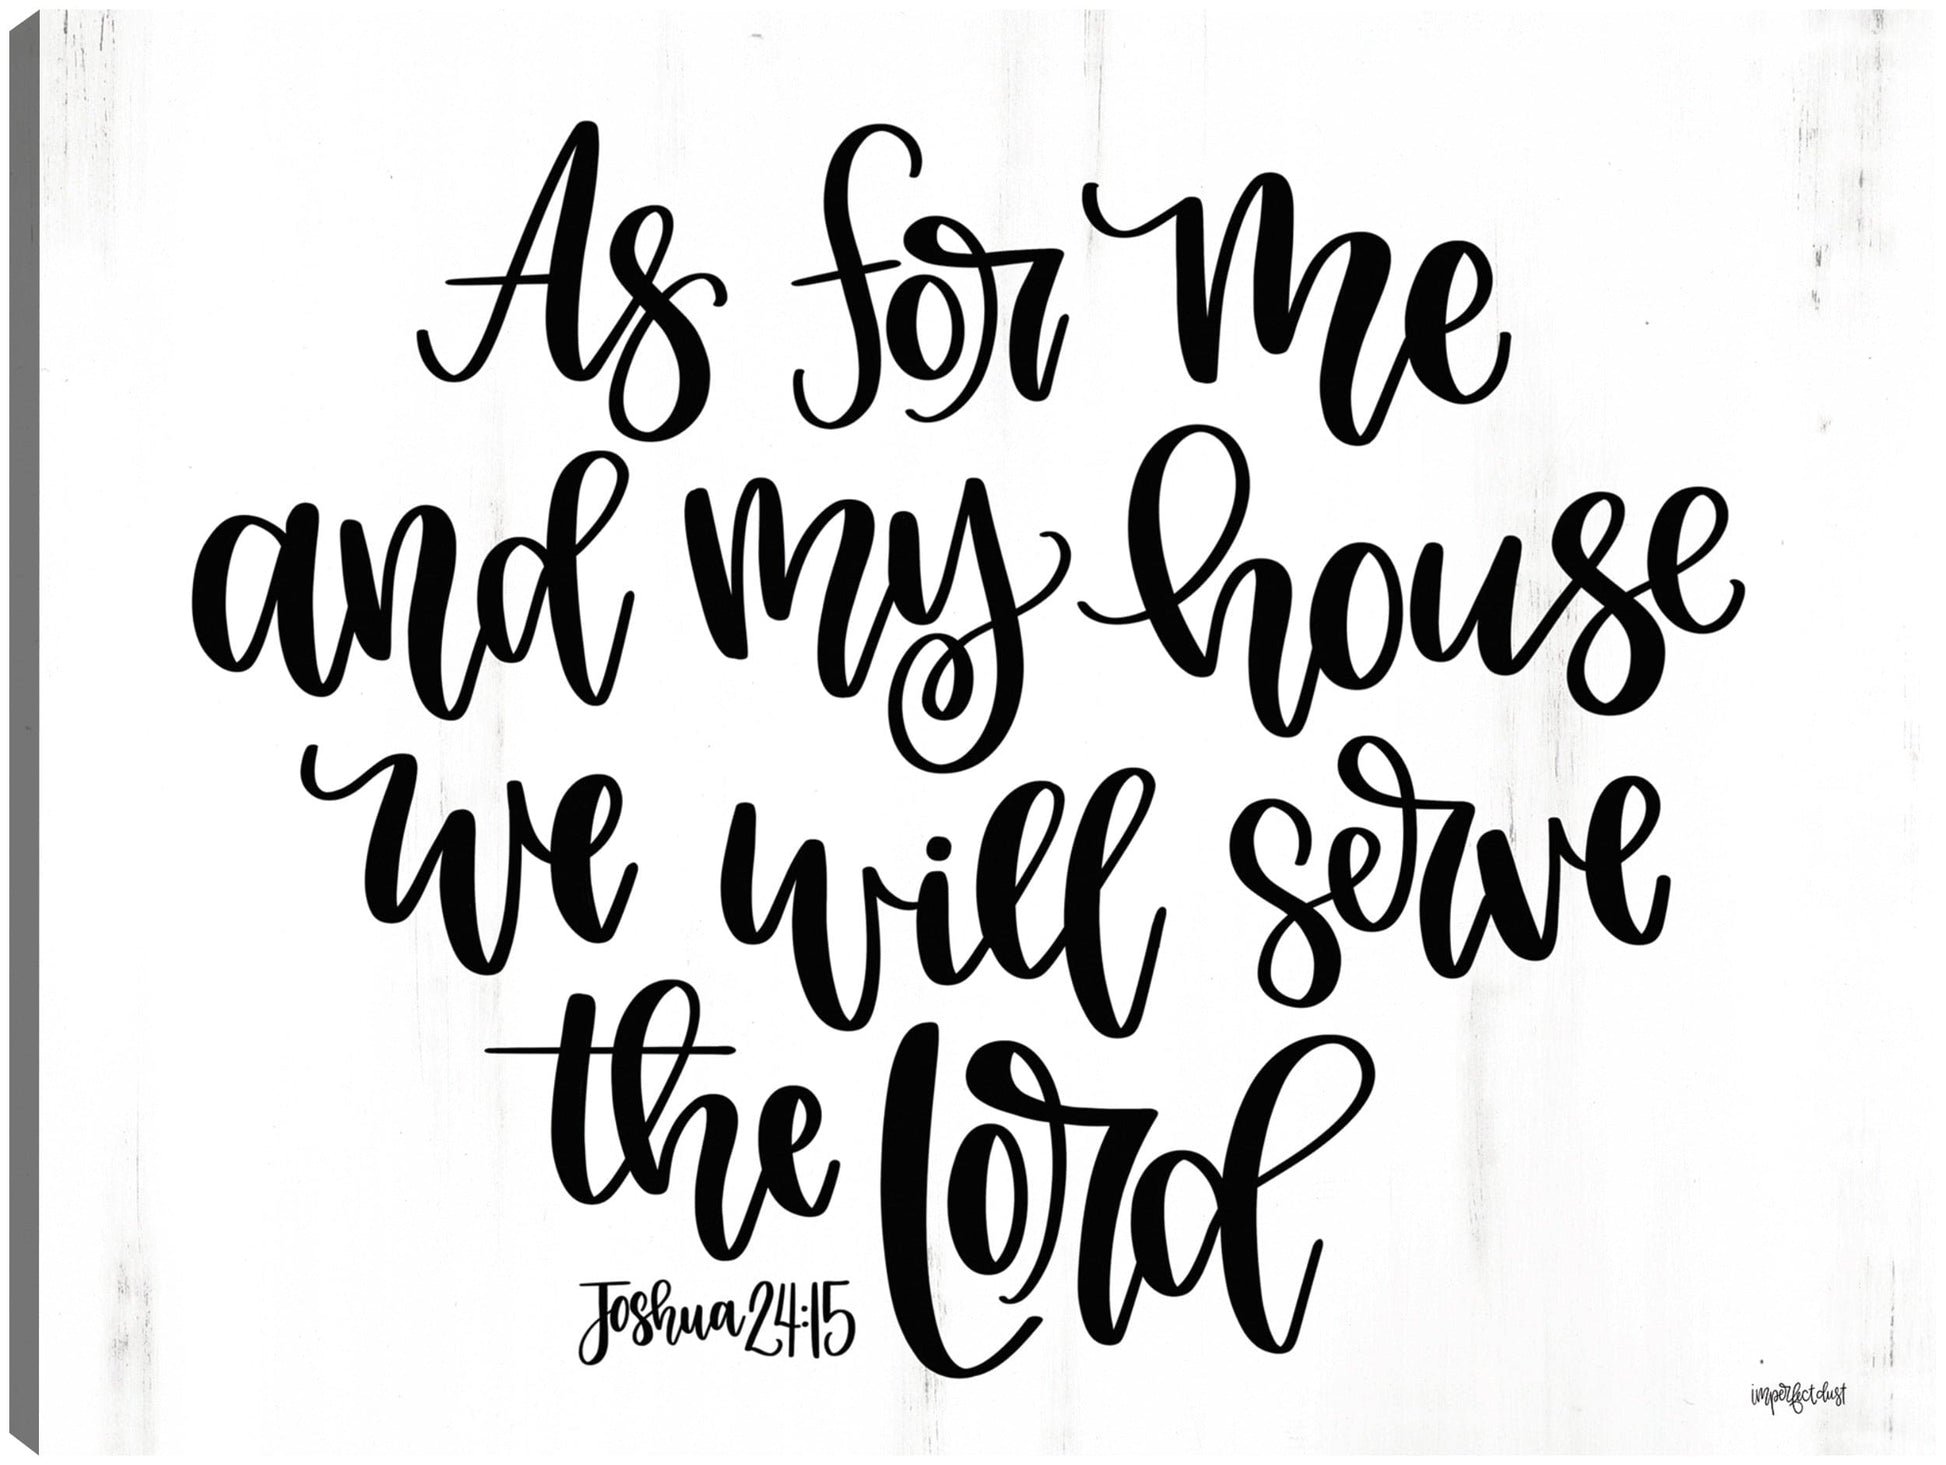 As for me
and my house
we will serve
the Lord
Joshua 24:15
imperfectdust